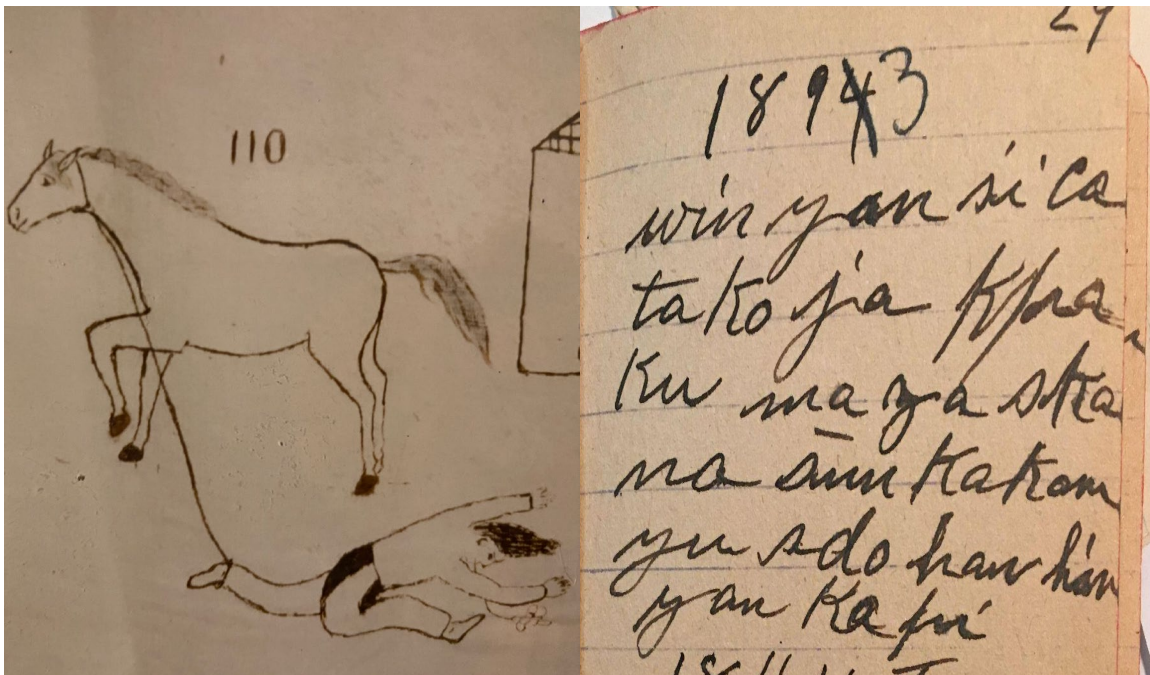 110
29
1893
win yan si ca
ta ko ja kpa
ku ma za ska
na sun ka kan
yu sdo han han
yan ka pi